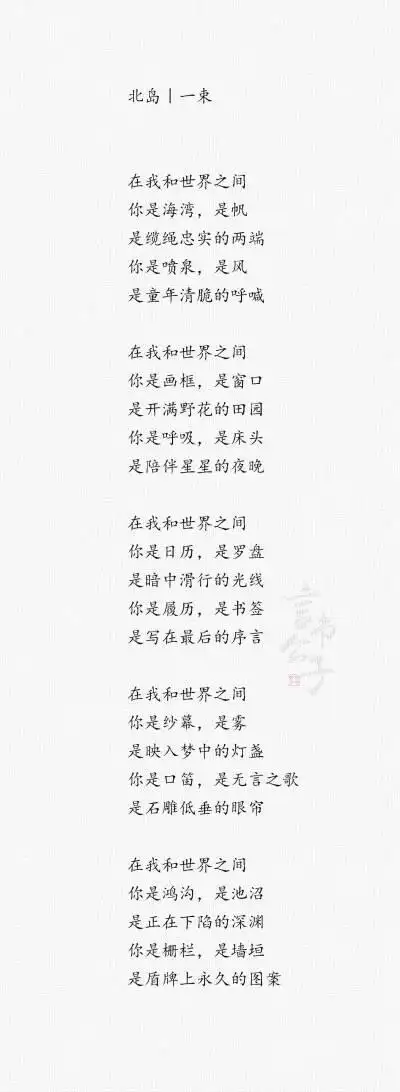 北岛|一束
在我和世界之间
你是海湾，是帆
是缆绳忠实的两端
你是喷泉，是风
是童年清脆的呼喊
在我和世界之间
你是画框，是窗口
是开满野花的田园
你是呼吸，是床头
是陪伴星星的夜晚
在我和世界之间
你是日历，是罗盘
是暗中滑行的光线
你是履历，是书签
是写在最后的序言
在我和世界之间
你是纱幕，是雾
是映入梦中的灯盏
你是口笛，是无言之歌
是石雕低垂的眼帘
在我和世界之间
你是鸿沟，是池沼
是正在下陷的深渊
你是栅栏，是墙垣
是盾牌上永久的图案
言书公子